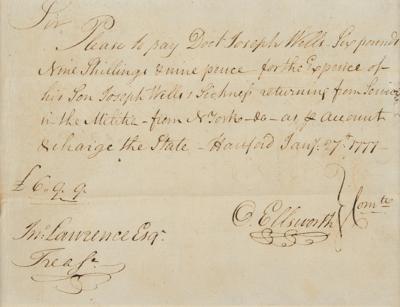 Sir
Please to pay Doct Joseph Wells Six pound
Nine Shillings & nine pence for the Expence of
his Son Joseph Wells's Sickness returning from Service
in the Militia - from N York - &a - as pr account
& charge the State - Harford Jany. 27th 1777
£6.9.9.
O. Ellsworth } Comtee
Jno. Lawrence Esqr.
Treasr.